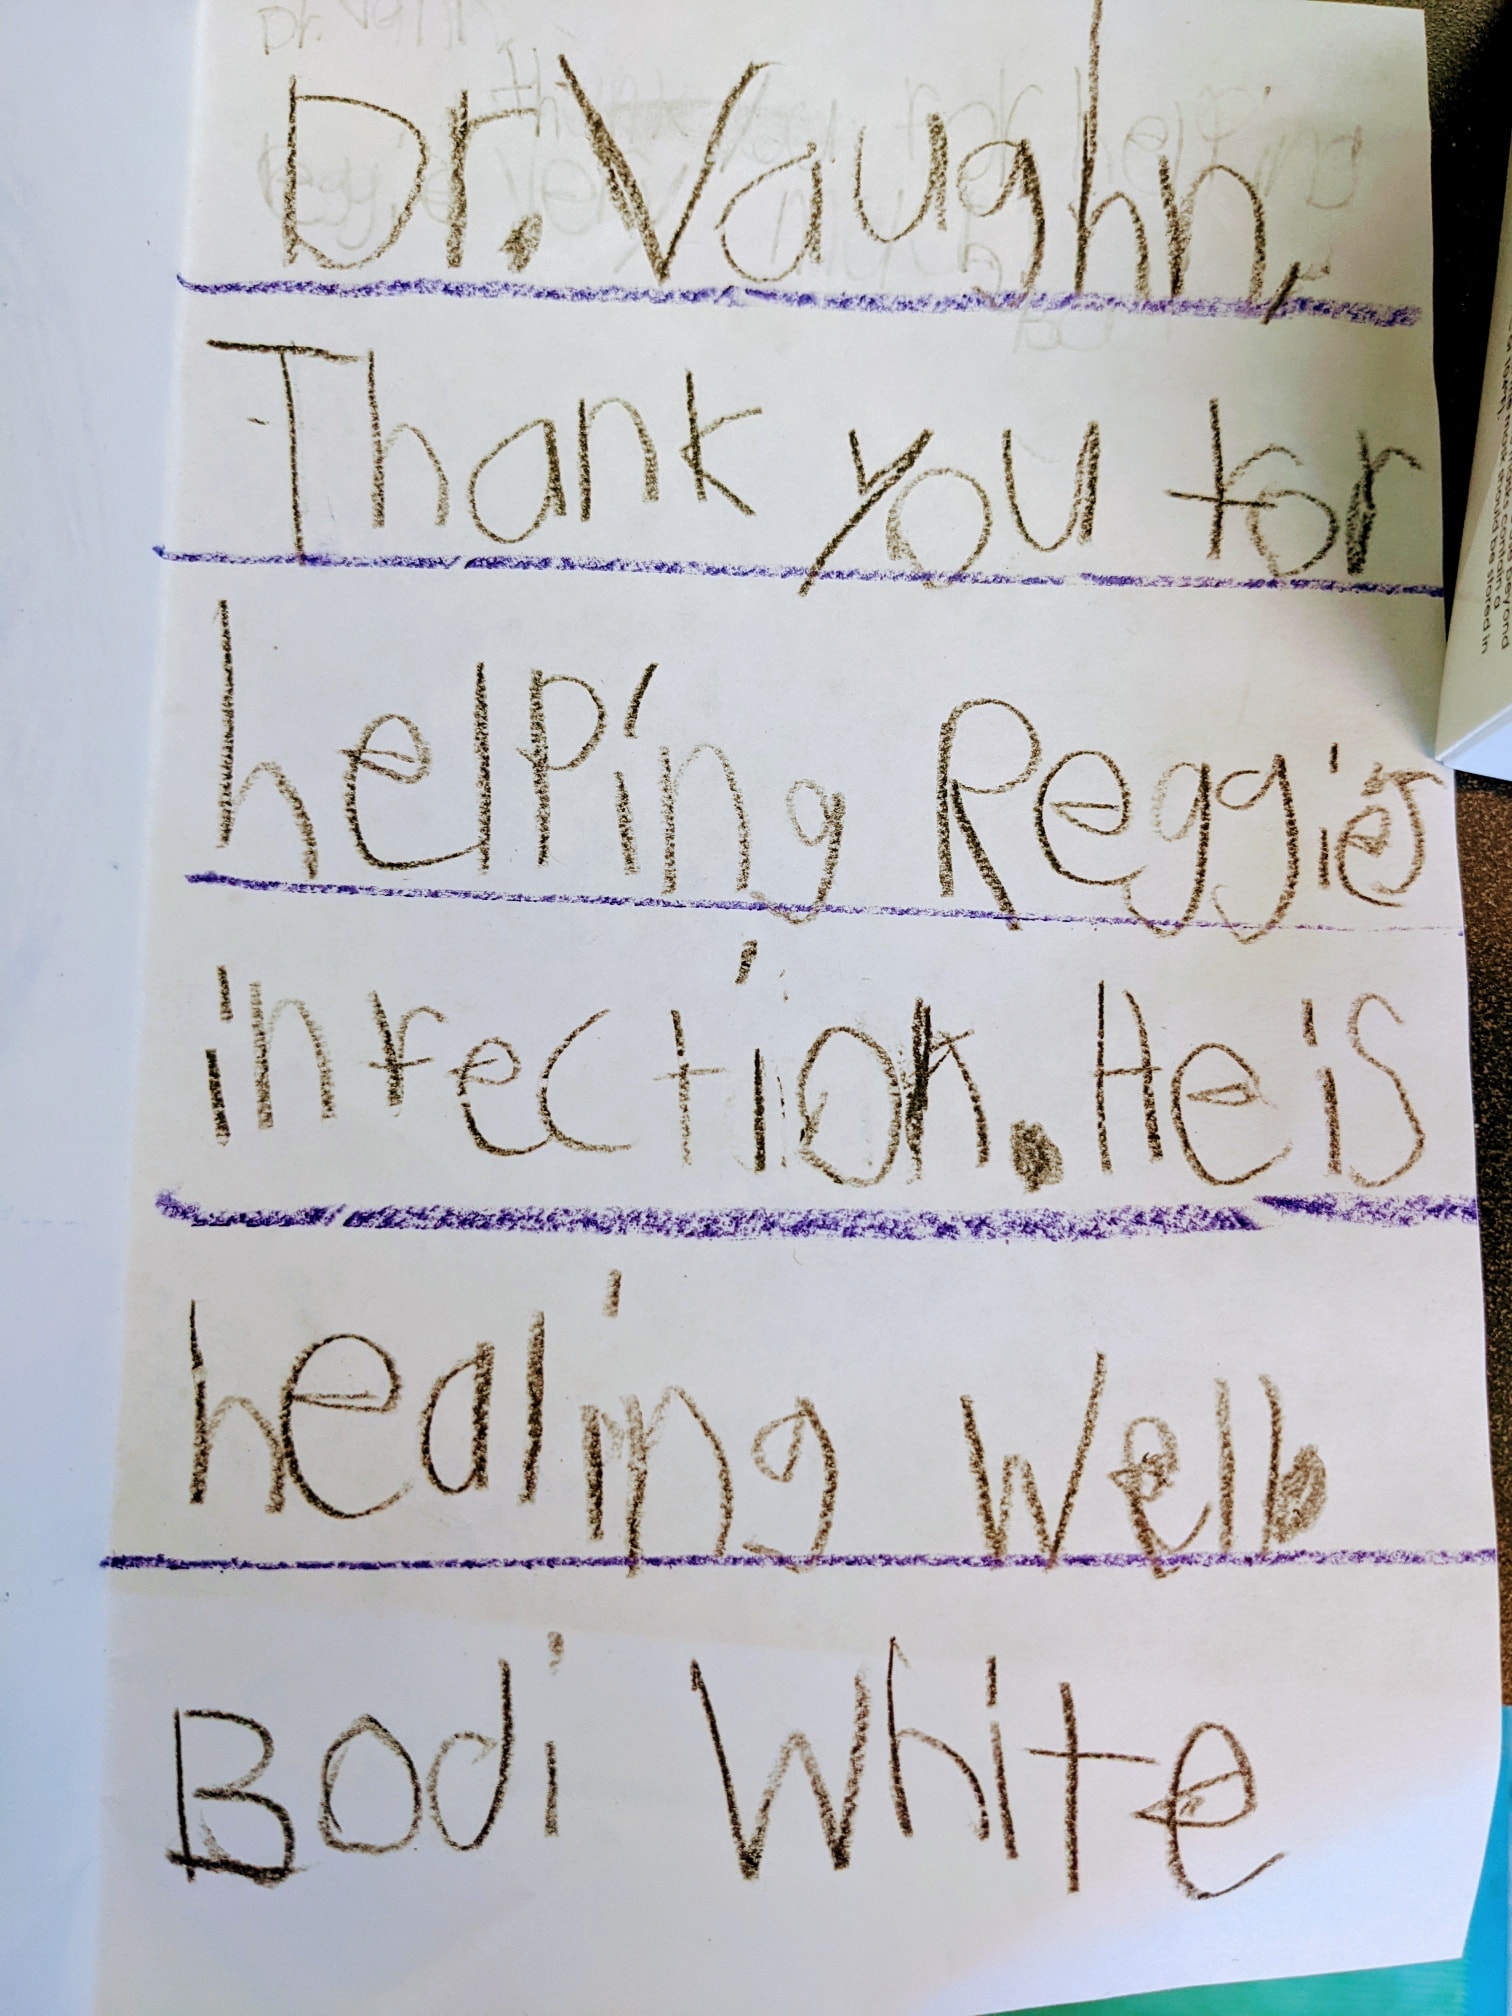 Dr. Vaughn,
Thank you for
helping Reggies
infection. He is
healing well.
Bodi White